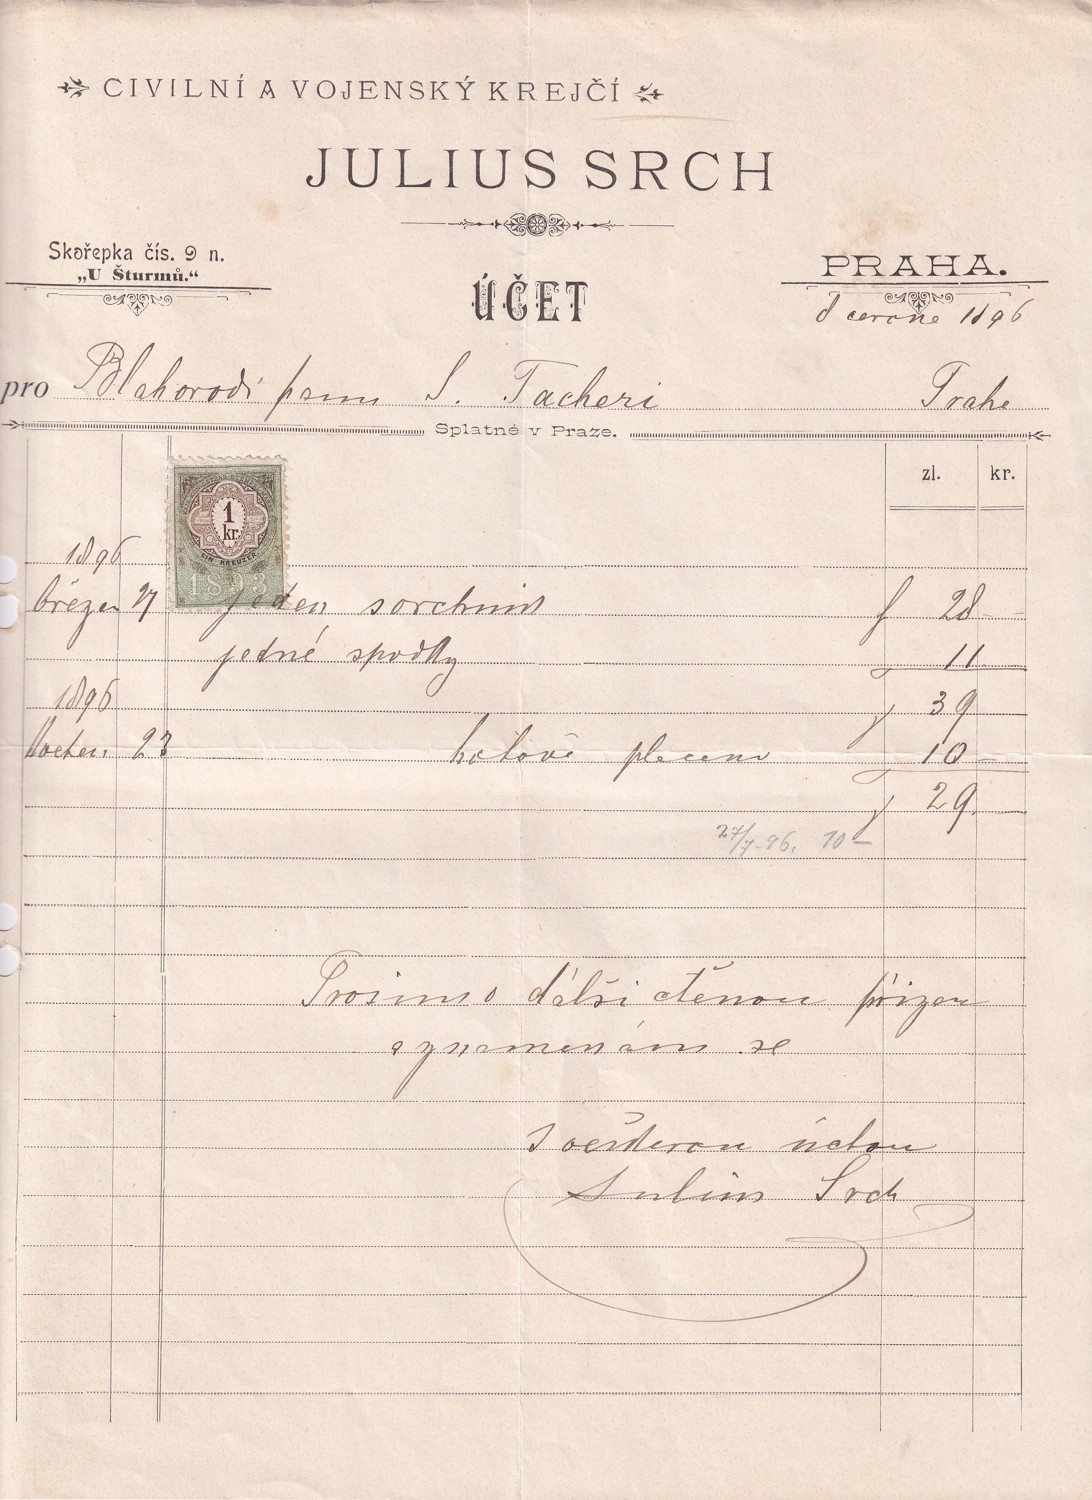 CIVILNÍ A VOJENSKÝ KREJČÍ
JULIUS SRCH
Skořepka čís. 9 n.
„U Šturmů.“
PRAHA.
ÚČET
8 června 1896
pro Blahorodí pana S. Tacheri Praha
Splatné v Praze.
zl. kr.
1 kr.
EIN KREUZER
1893
1896
březen 27 jeden f 28 —
jedné spodky 11
1896
39
23 hotově placeno 10 —
29
27/7.96. 10 —
Prosím o další ctěnou přízeň
a znamenám se
s veškerou úctou
Julius Srch